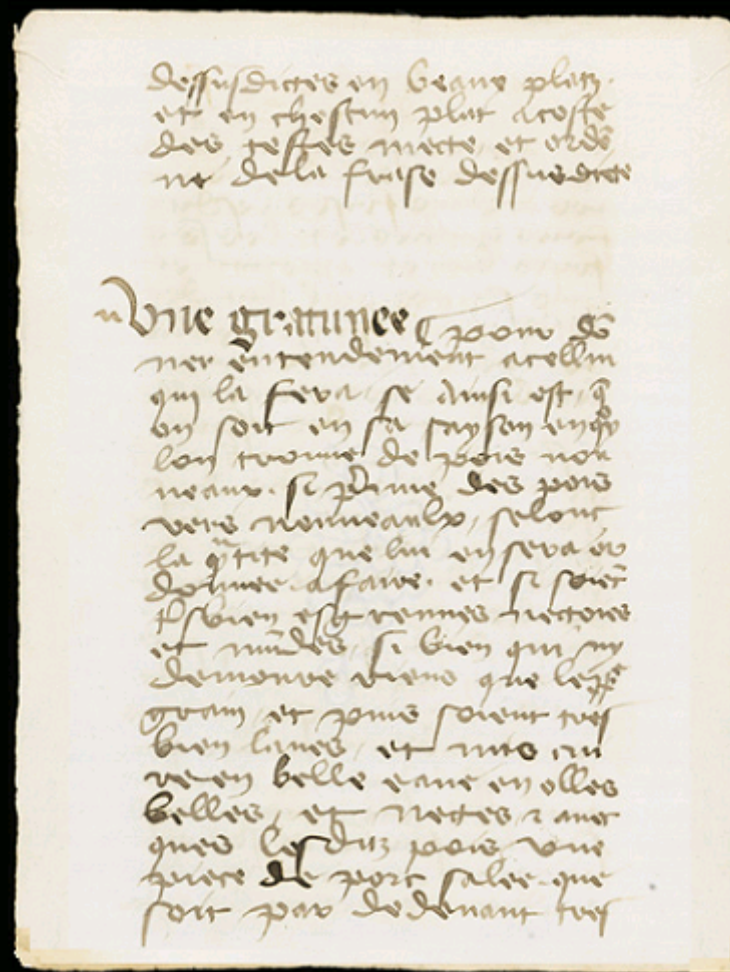 dessusdictes en beaux platz.
et en chescun plat acoste
des testes mecte et orde
ne de la frase dessusdicte
u Une gratunee pour dō
ner entendement acelluy
qui la fera se ainsi est q̄
on soit en sa sayson en quoy
lon trouve de pois nou
veaux. si prenne des pois
vers nouveaulx, selont
la q̄tite que lui en sera or
donnee afaire. et si soiēt
tres bien esgrennes nectoies
et mūdes, si bien qui ny
demoure riens que le
grain et puis soient tres
bien laves, et mis cui
re en belle eaue en olles
belles, et netes et avec
ques les ditz pois une
piece de porc salee. que
soit par dedevant tres